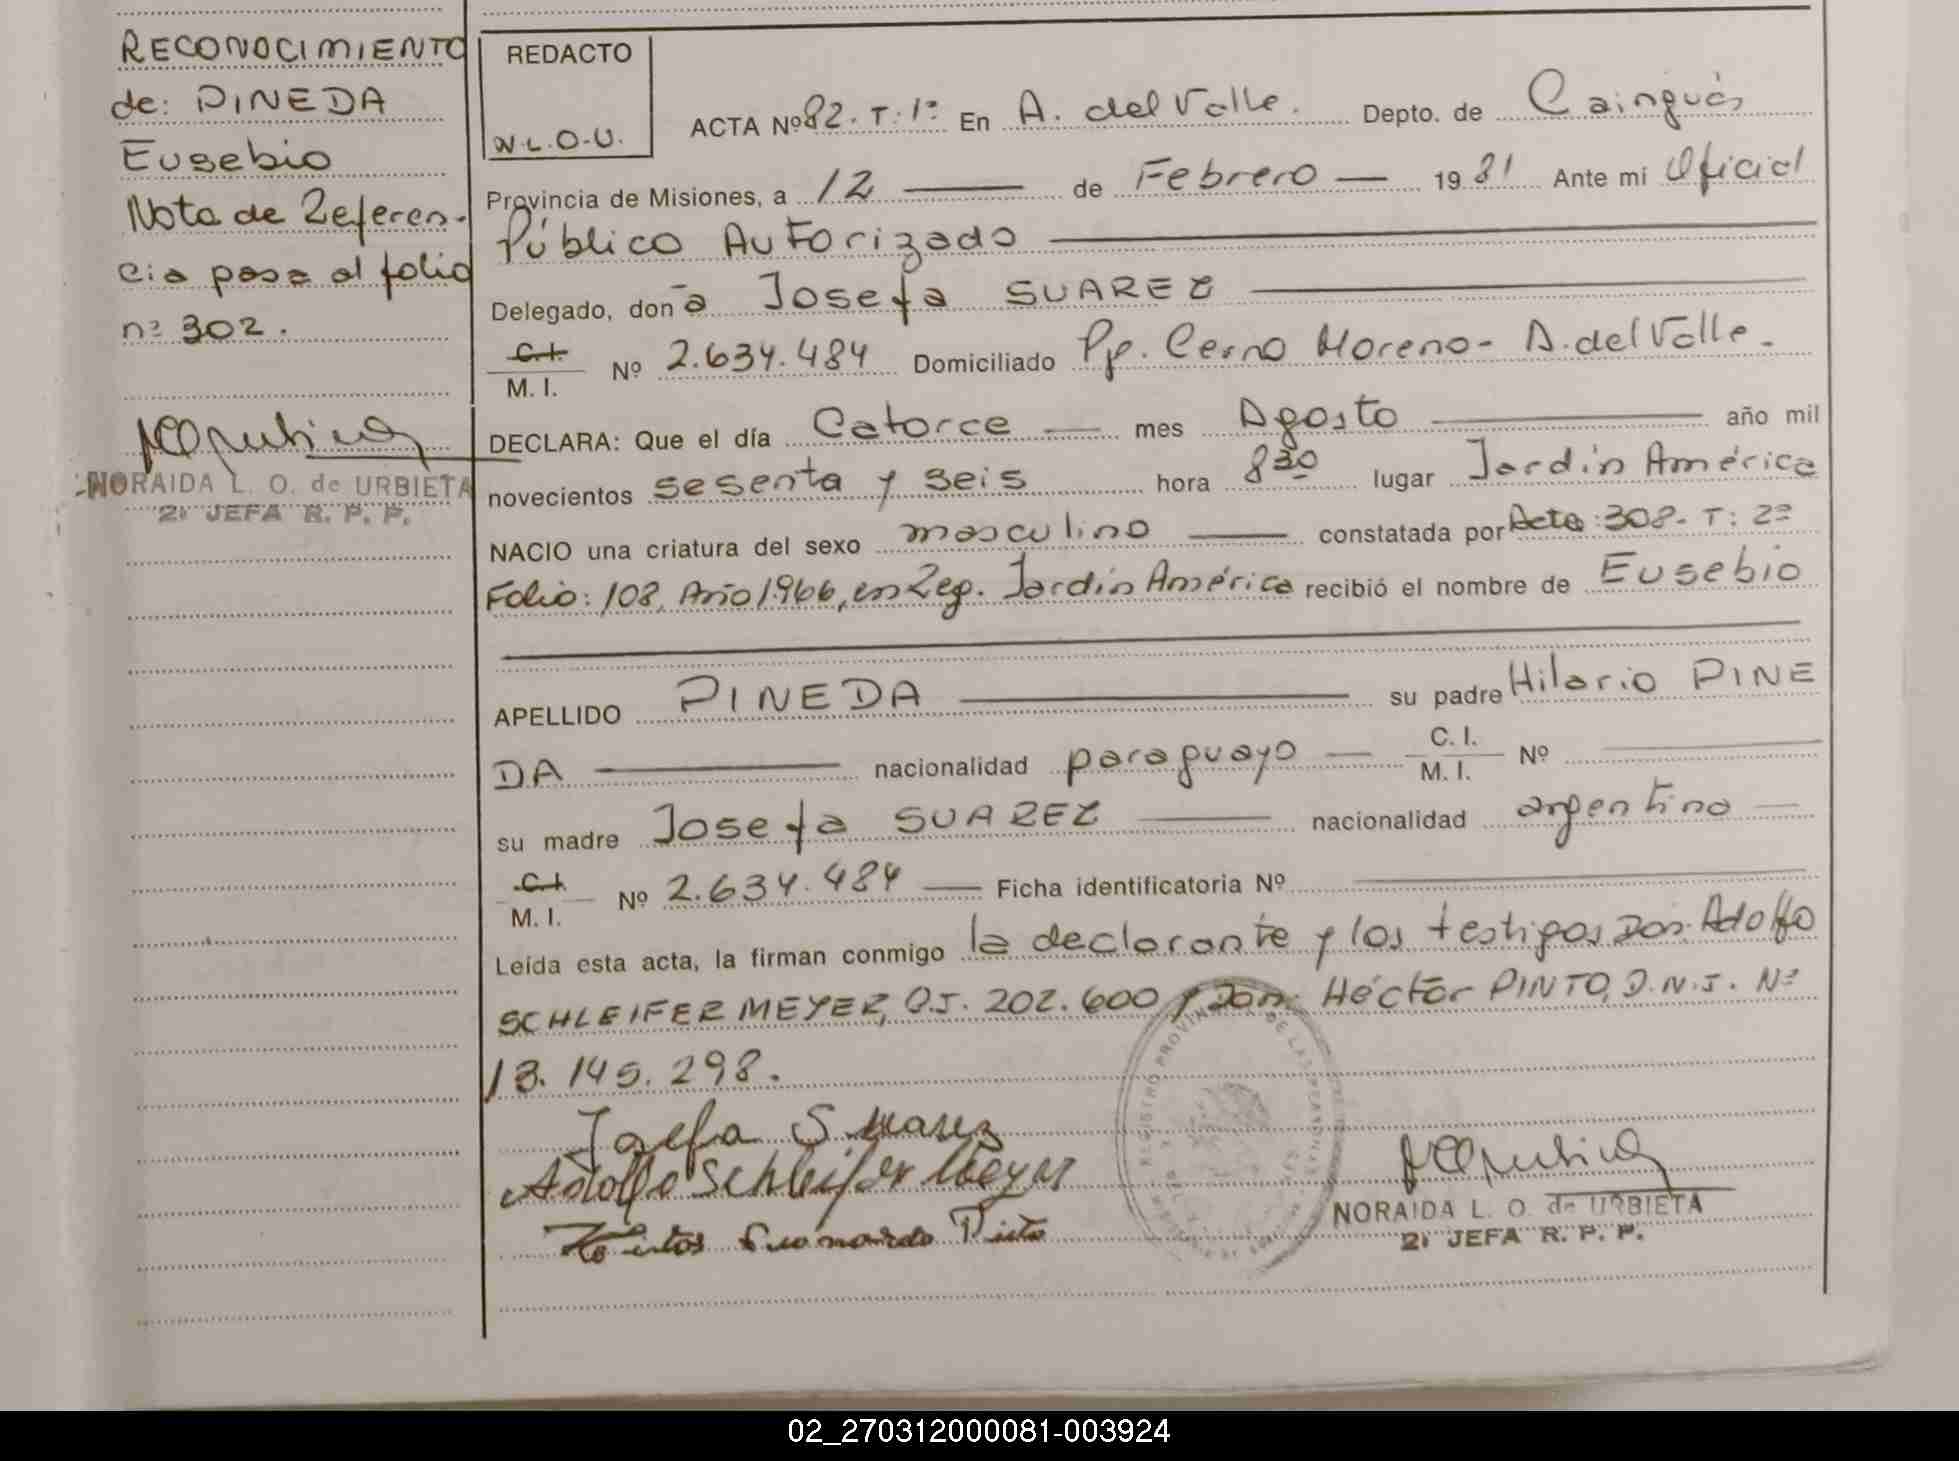 RECONOCIMIENTO
de: PINEDA
Eusebio
Nota de Referen-
cia pasa al folio
nº 302.
NORAIDA L. O. de URBIETA
2ª JEFA R. P. P.
REDACTO
N.L.O.U.
ACTA Nº 82. T: 1º En A. del Valle. Depto. de Cainguás
Provincia de Misiones, a 12 de Febrero 1981 Ante mí Oficial
Público Autorizado
Delegado, doña Josefa SUAREZ
C.I. M. I. Nº 2.634.484 Domiciliado Pje. Cerro Moreno - A. del Valle.
DECLARA: Que el día Catorce mes Agosto año mil
novecientos sesenta y seis hora 8 30 lugar Jardín América
NACIO una criatura del sexo masculino constatada por Acta: 308. T: 2º
Folio: 108, Año 1966, en Reg. Jardín América recibió el nombre de Eusebio
APELLIDO PINEDA su padre Hilario PINE
DA nacionalidad paraguayo C. I. M. I. Nº
su madre Josefa SUAREZ nacionalidad argentina
C.I. M. I. Nº 2.634.484 Ficha identificatoria Nº
Leída esta acta, la firman conmigo la declarante y los testigos Don: Adolfo
SCHLEIFER MEYER, C.I. 202.600 y Don: Héctor PINTO, D.N.I. Nº
13.145.298.
Josefa Suarez
Adolfo Schleifer Meyer
Pinto
REGISTRO PROVINCIAL DE LAS PERSONAS
NORAIDA L. O. de URBIETA
2ª JEFA R. P. P.
02_270312000081-003924